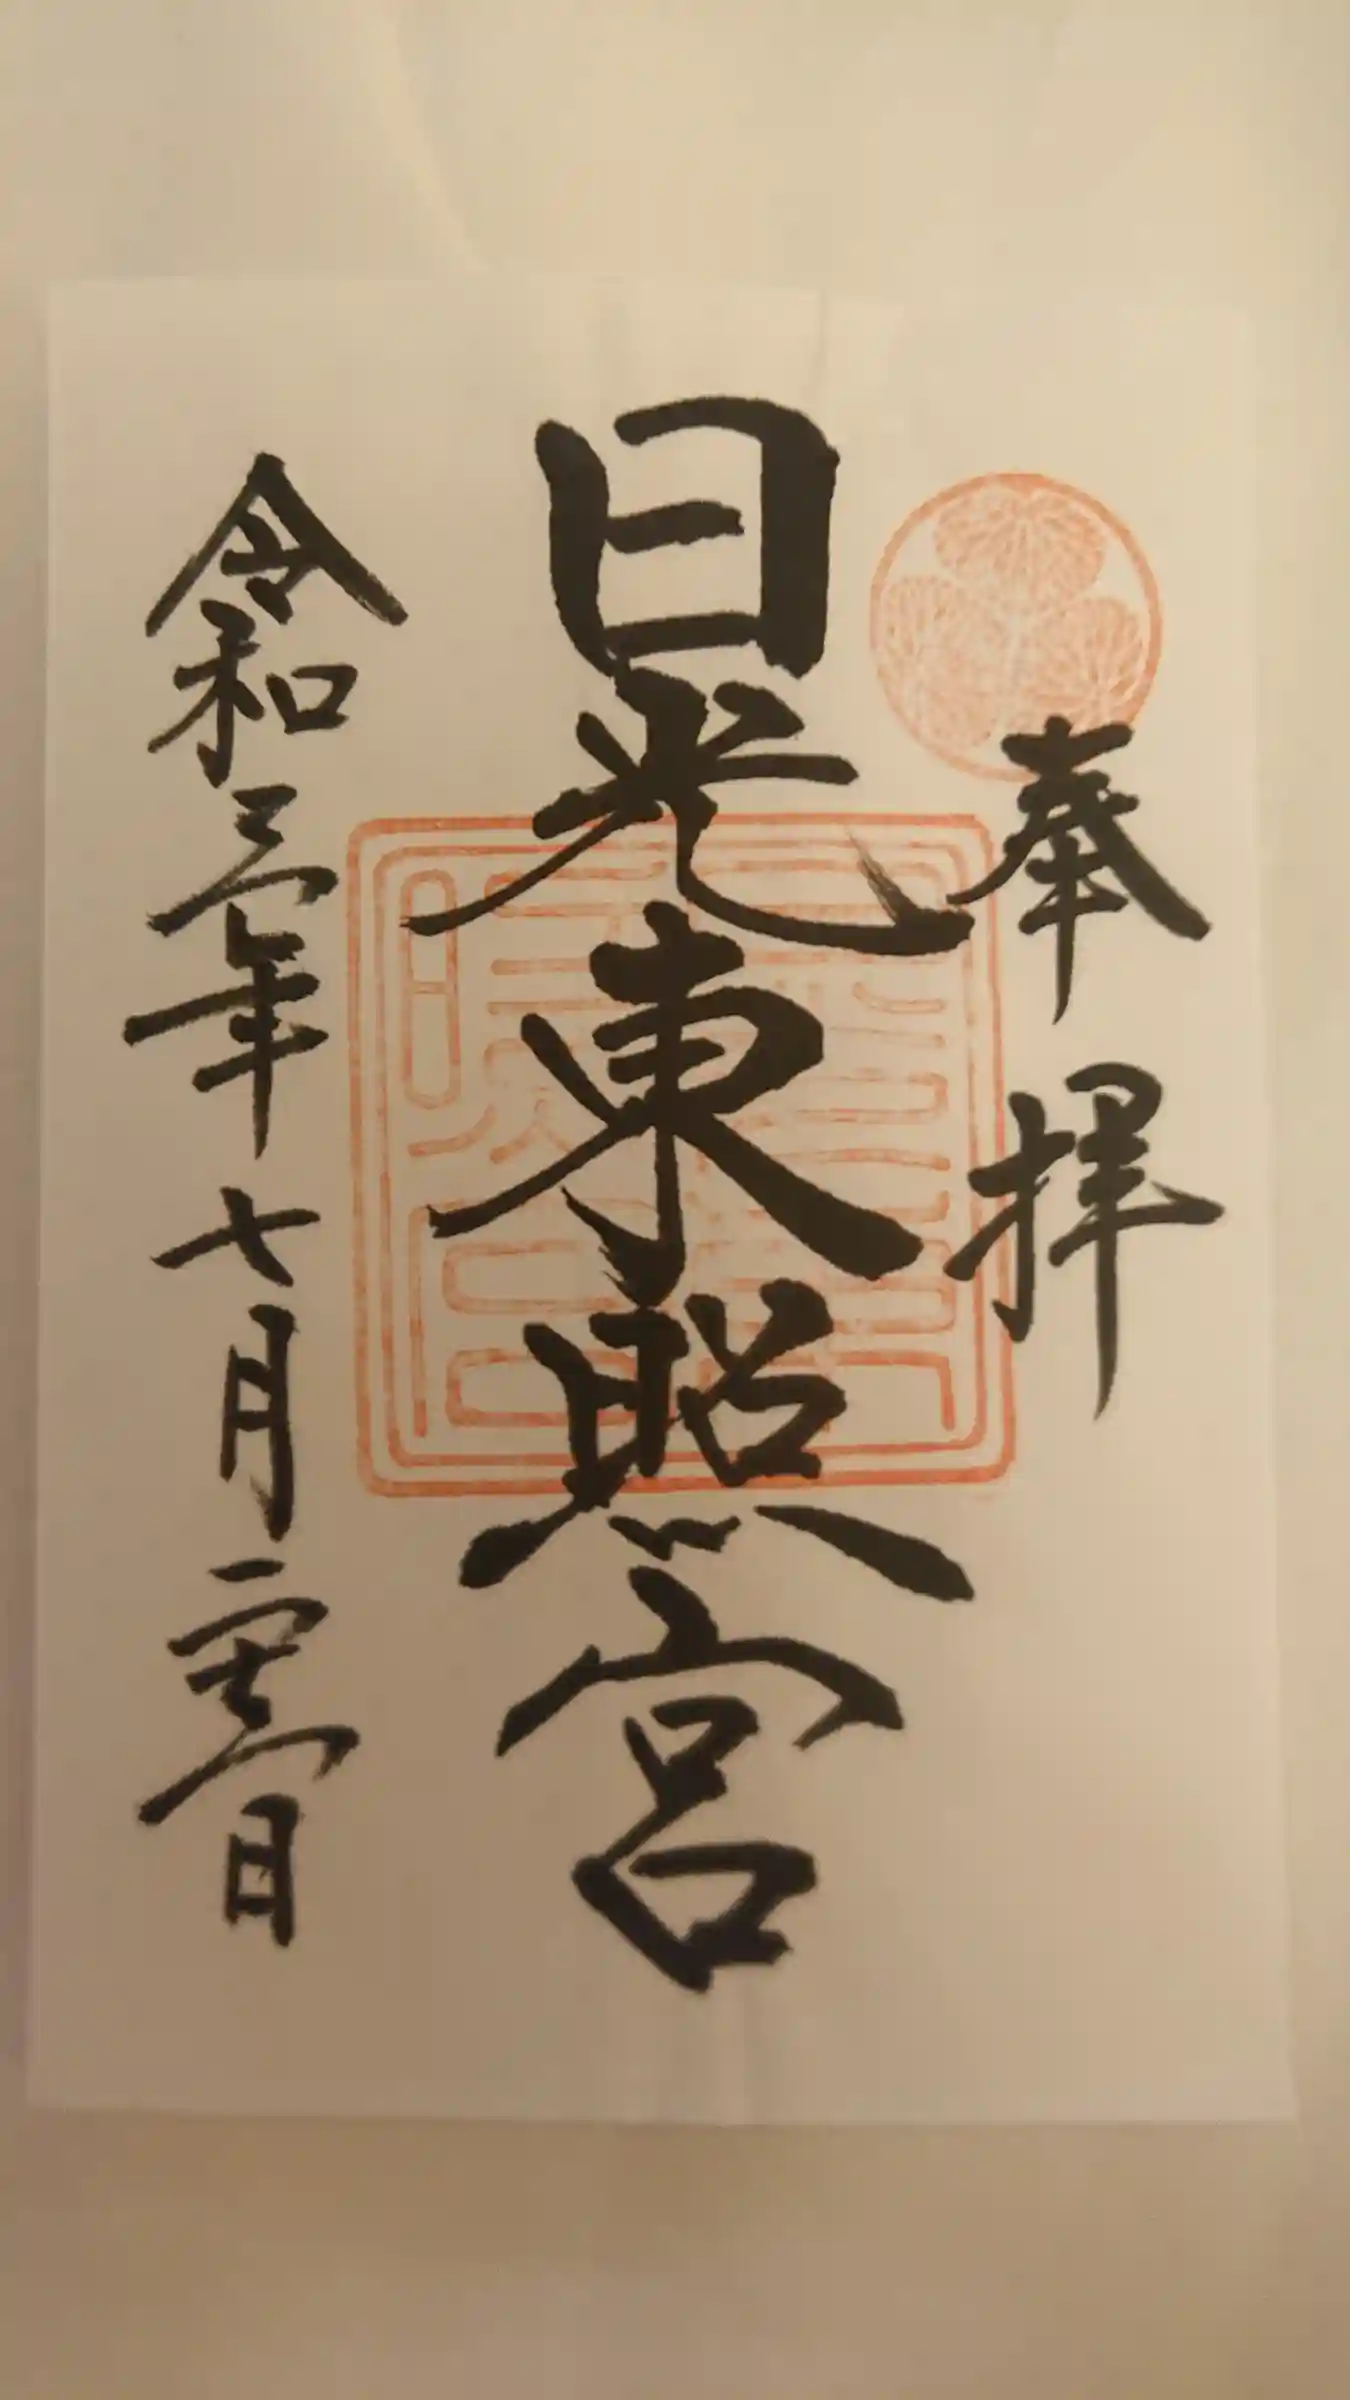 奉拝
日光東照宮
令和三年七月日